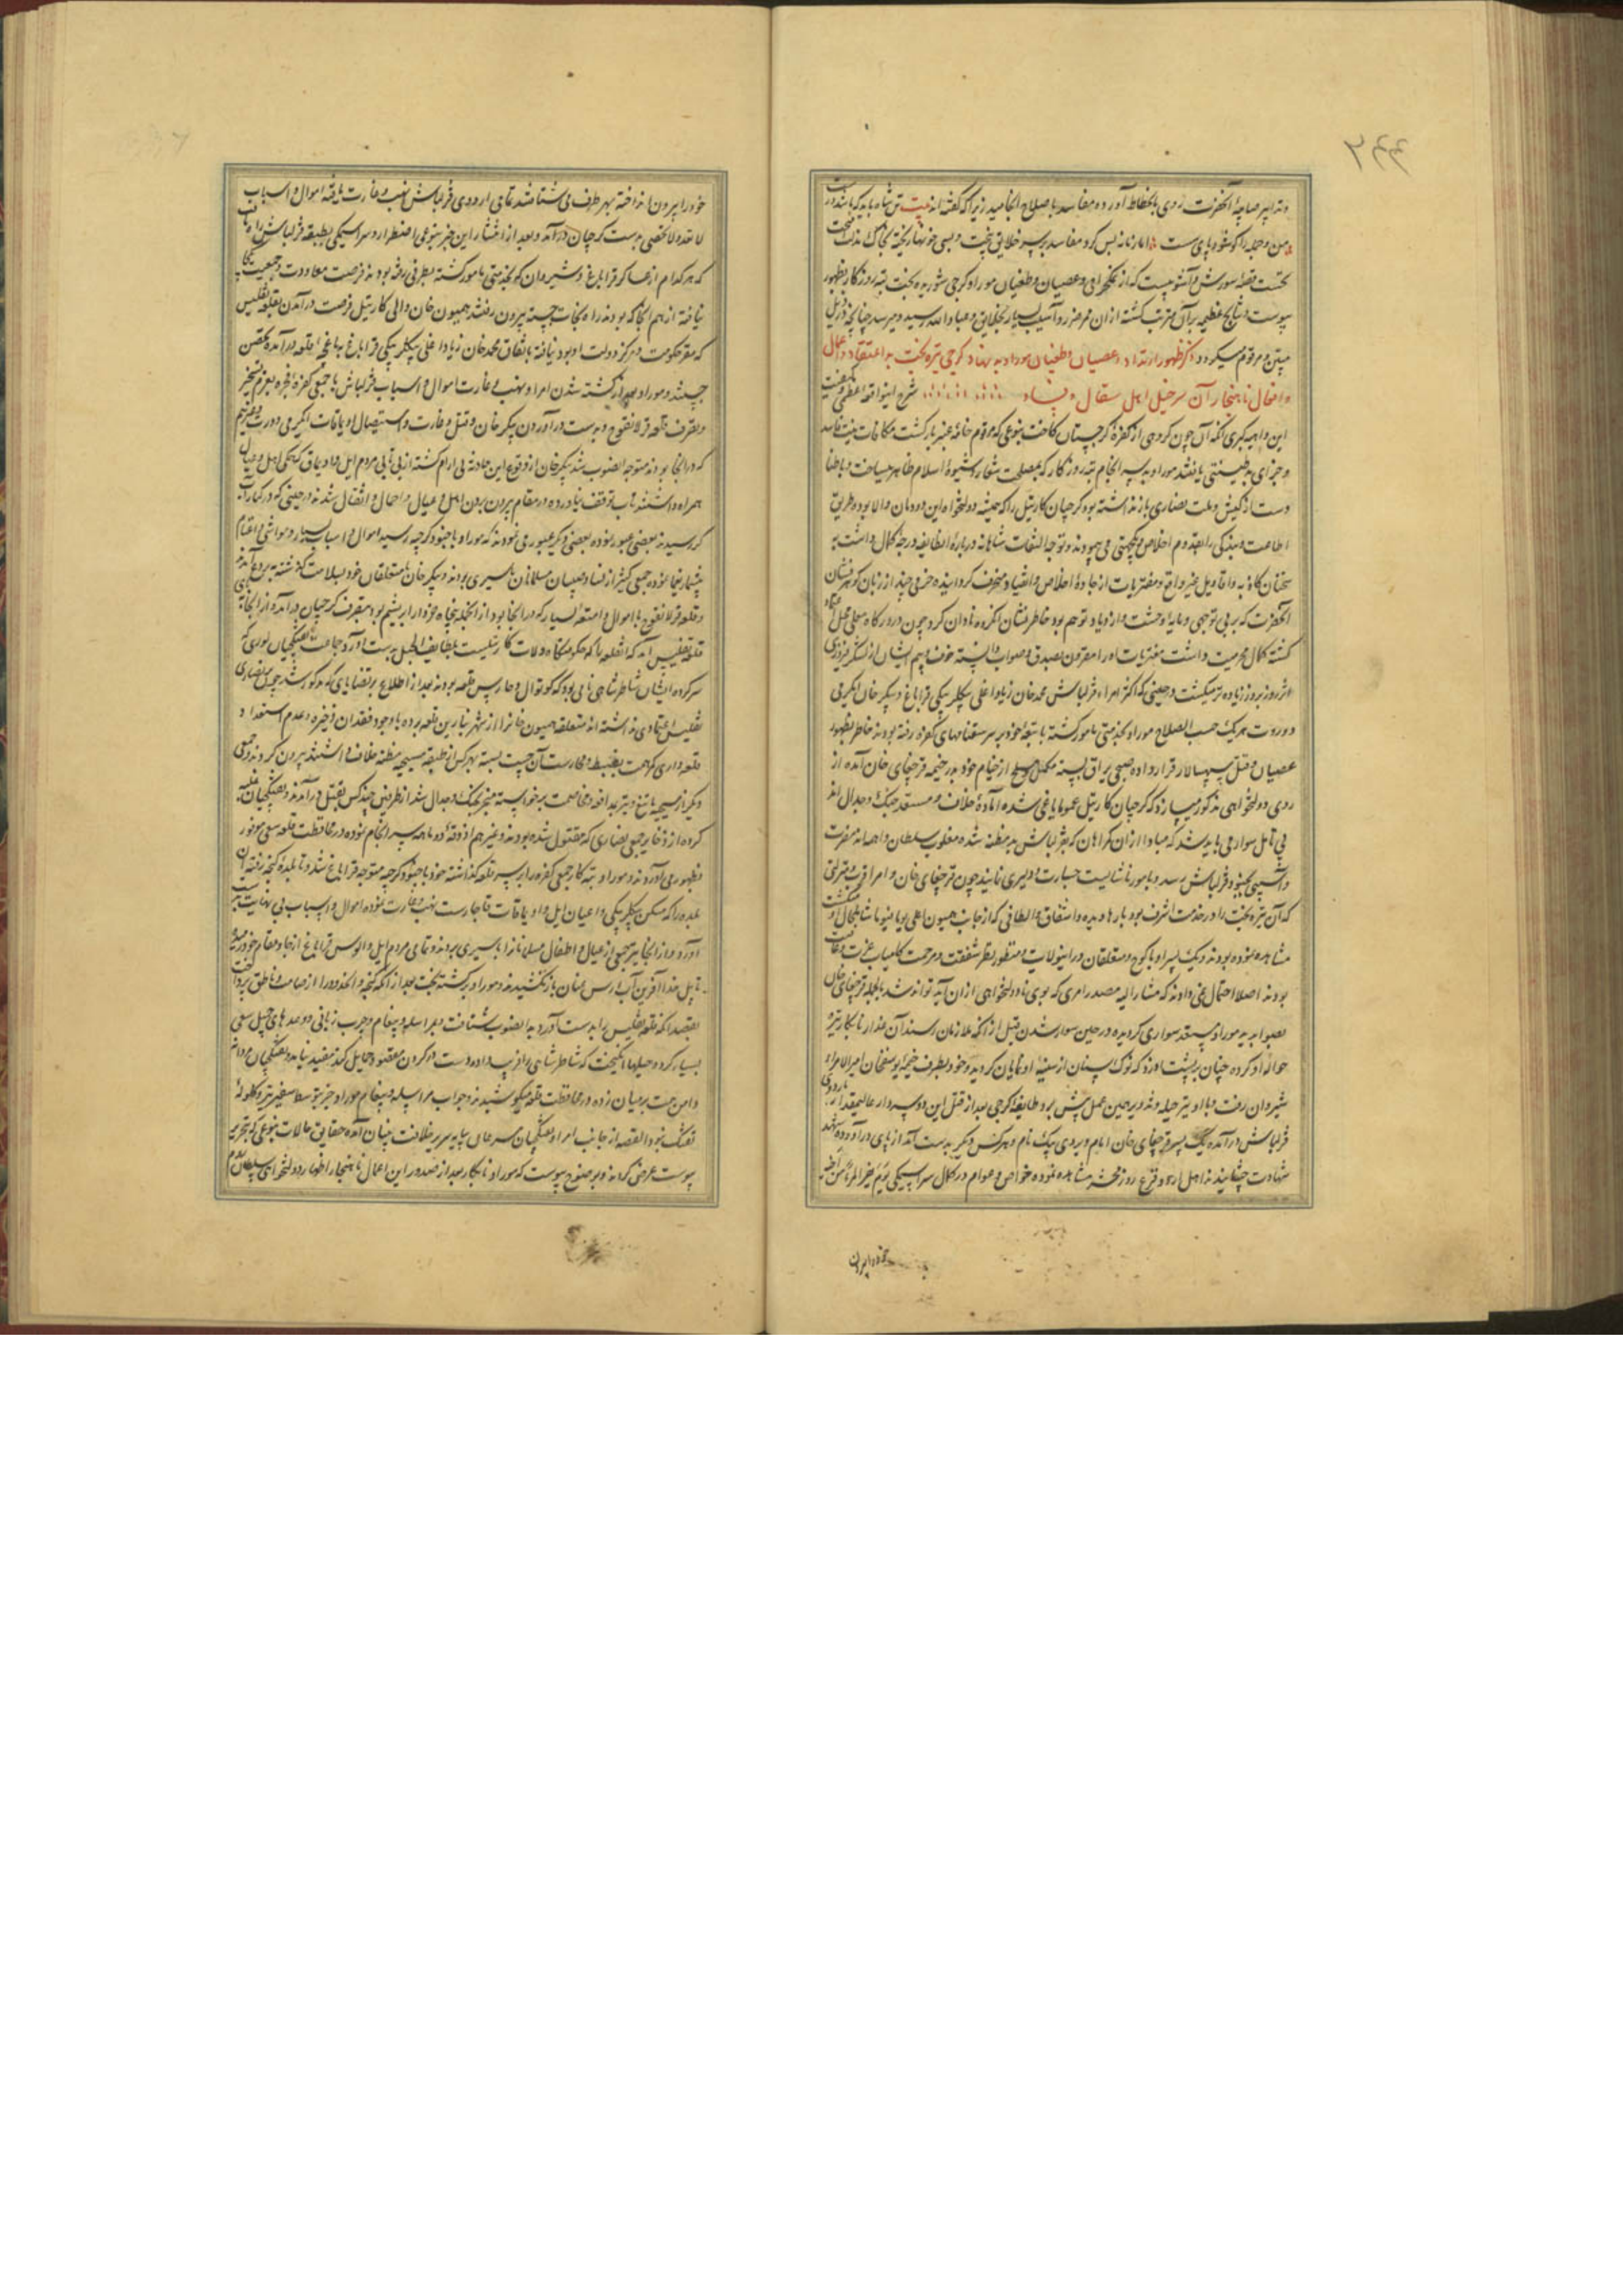 وتدابیر صایبهٔ آنحضرت روی بانحطاط آورده مفاسد باصلاح انجامید زیرا که گفته‌اند بیت تن شاه باید که باشد درست
اما زمانه بس کرد و مفاسد بر سر خلایق بیخت و بسی خونها ریخته
نخست قصهٔ شورش و آشوبیست که از نمکحرامی و عصیان و طغیان موراو گرجی شوریده بخت تیره روزگار بظهور
پیوست و نتایج عظیمه بر آن مترتب گشته از آن ممر ضرر و آسیب بسیار بخلایق و عباد الله رسید و میرسد چنانچه در ذیل
مبین و مرقوم میگردد ذکر ظهور ارتداد و عصیان و طغیان موراو بد نهاد گرجی تیره بخت بد اعتقاد و اعمال
و افعال ناهنجار آن سرخیل اهل فساد شرح اینواقعهٔ عظمی و کیفیت
این داهیه کبری آنکه آن چون گروهی از کفرهٔ گرجستان کاخت بنوعی که مرقوم خامهٔ عنبر بار گشت مکافات نیت فاسد
و جزای بد طینتی یافتند موراو بد سرانجام تیره روزگار که بمصلحت شعار و شیوهٔ اسلام ظاهر میساخت و باطنا
دست از کیش و ملت نصاری باز نداشته بود گرجیان کارتیل را که همیشه دولتخواه این دودمان والا بود و طریق
اطاعت و بندگی را بقدم اخلاص و یکجهتی می‌پیمودند و توجه التفات شاهانه درباره انطایفه درجهٔ کمال داشت به
سخنان کاذبه و اقاویل غیر واقع و مفتریات از جادهٔ اخلاص و انقیاد منحرف گردانیده حرفی چند از زبان گوهرفشان
آنحضرت که بر بی توجهی و مایهٔ وحشت و ازدیاد توهم بود خاطرنشان انگروه نادان کرد چون در درگاه معلی محل اعتماد
گشته کمال محرمیت داشت مفتریات او را مقرون بصدق و صواب دانسته خوف و بیم ایشان از لشکر فیروزی
اثر روز بروز زیاده تر میگشت و حینی که اکثر امراء قزلباش محمد خان زیاد اغلی بیگلربیگی قراباغ و پیکر خان ایگرمی
دورت هر یک حسب الصلاح موراو بخدمتی مامور گشته با تبعهٔ خود بر سر سقناقهای کفره رفته بودند خاطر بظهور
عصیان و قتل سپهسالار قرار داده صبحی یراق بسته مکمل و مسلح از خیام خود بدر خیمه قرچقای خان آمده از
روی دولتخواهی مذکور میسازد که گرجیان کارتیل عموما یاغی شده آمادهٔ خلاف و مستعد جنک و جدال اند
بی تامل سوار می باید شد که مبادا از آن گمراهان که بقزلباش بد مظنه شده مغلوب سلطان واهمه‌اند مضرت
و آسیبی بجنود قزلباش رسد و بامور ناشایست جسارت و دلیری نمایند چون قرچقای خان و امرا قرب و منزلتی
که آن تیره بخت را در خدمت اشرف بود بارها دیده و اشفاق و الطافی که از جانب همیون اعلی یوما فیوما شامل حال او میگشت
مشاهده نموده بودند و یک پسر او با کوچ و متعلقان در اینولایت منظور نظر شفقت و مرحمت کامیاب عزت و عافیت
بودند اصلا احتمال نمی دادند که مشارالیه مصدر امری که بوی نادولتخواهی از آن آید تواند شد بالجمله قرچقای خان
بصوابدید موراو مستعد سواری گردیده در حین سوار شدن قبل از آنکه ملازمان رسند آن غدار نابکار نیزه
حوالهٔ او کرده چنان بر پشت او زد که نوک سنان از سینهٔ او نمایان گردیده و خود بطرف خیمه یوسفخان امیرالامراء
شیروان رفت و با او نیز حیله‌وند درین حین عمل پیش برد و طایفهٔ گرجی بعد از قتل این دو سردار عالیمقدار باردوی
قزلباش درآمده یک پسر قرچقای خان امام ویردی بیک نام و هر کس دیگر بدست آمد از پای درآورده شربت
شهادت چشانیدند اهل اردو قزع روز محشر مشاهده نموده خواص و عوام در کمال سراسیمگی یوم یفر المرء من اخیه
خود را بیرون
خود را بیرون انداخته بهر طرف می شتافتند تمامی اردوی قزلباش نهب و غارت یافته اموال و اسباب
لا تعد و لا تحصی بدست گرجیان درآمد و بعد از انتشار این خبر بنوعی اضطرار و سراسیمگی بطبقه قزلباش راه یافت
که هر کدام از عساکر قراباغ و شیروان که بخدمتی مامور گشته بطرفی رفته بودند فرصت معاودت و جمعیت بیکجا
نیافته از هم انجا که بودند راه نجات جسته بیرون رفتند همیون خان والی کارتیل فرصت درآمدن بقلعه تفلیس
که مقر حکومت و مرکز دولت او بود نیافته باتفاق محمد خان زیاد اغلی بیگلربیگی قراباغ قلعه درآمده تحصن
جستند و موراو بعد از کشته شدن امرا و نهب و غارت اموال و اسباب قزلباش با جمعی کفرهٔ فجره بعزم تسخیر
و تصرف قلعه قرلانقوج و بدست درآوردن پیکر خان و قتل و غارت و استیصال اویماقات ایگرمی دورت و غیرهم
که در انجا بودند متوجه انصوب شد پیکر خان از وقوع این حادثه بی ارام گشته از بی تابی مردم ایل و اویماق که همگی اهل و عیال
همراه داشتند تاب توقف نیاورده در مقام بیرون بردن اهل و عیال و احمال و اثقال شدند در حینی که در کنار آب
کر رسیدند بعضی عبور نموده بعضی دیگر عبور می نمودند که موراو با جنود گرجیه رسید اموال و اسباب بسیار و مواشی و اغنام
بیشمار یغما نموده جمعی کثیر از نسا و صبیان مسلمانان باسیری بردند و پیکر خان با متعلقان خود بسلامت گذشته ببردع آمدند
و قلعه قرلانقوج با اموال و امتعه بسیار که در انجا بود از انجمله پنجاه خروار ابریشم بود بتصرف گرجیان درآمد و از انجا به
قلعه تفلیس آمد که انقلعه را که حکومتگاه ولات کارتیلست بلطایف الحیل بدست آورد جماعت تفنگچیان توری که
سرکردهٔ ایشان شاطر شاهی نامی بود که کوتوال و حارس قلعه بودند بعد از اطلاع بر قضایای که مذکور شد چون بر نصاری
تفلیس اعتمادی نداشته‌اند متعلقه همیون خانرا از شهر نیارین قلعه برده با وجود فقدان ذخیره و عدم استعداد
قلعه داری کمر همت بضبط و حراست آن چست بسته بهر کس از طبقه مسیحیه مظنه خلاف داشتند بیرون کردند و جمعی
دیگر از مسیحیه با تیغ و تیر بمدافعه و مخاصمت برخواسته منجر بجنک و جدال شد از طرفین چند کس بقتل درآمدند و تفنگچیان غلبه
کرده از ذخایر جمعی نصاری که مقتول شده بودند و غیر هم اذوقهٔ دو ماهه سرانجام نموده در محافظت قلعه سعی موفور
بظهور می آوردند و موراو تبه کار جمعی کفره را بر سر قلعه گذاشته خود با جنود گرجیه متوجه قراباغ شد و تا بلدهٔ گنجه رفته آن
بلده را که مسکن بیگلربیگی و اعیان ایل و اویماقات قاجار است نهب و غارت نموده اموال و اسباب بی نهایت بدست
آورد و از انجا نیز جمعی از عیال و اطفال مسلمانانرا باسیری بردند و تمامی مردم ایل و الوس قراباغ از جا و مقام خود رمیده
تا پل خدا آفرین آب ارس عنان باز نکشیدند و موراو برگشته بخت بعد از آنکه گنجه و انحدود را از صامت و ناطق پرداخت
بقصد آنکه قلعه تفلیس را بدست آورد بدانصوب شتافت و بمراسله و پیغام و چرب زبانی و وعدهای جمیل سعی
بسیار کرده و حیلها انگیخت که شاطر شاهی را فریب داده دست در گردن مقصود حمایل کند مفید نیامد و تفنگچیان مردانه
دامن همت بر میان زده در محافظت قلعه میکوشیدند و جواب مراسله و پیغام موراو جز بتوسط سفیر تیر و گلوله
تفنک نبود القصه از جانب امرا و تفنگچیان مسرعان بپایه سریر خلافت بنیان آمده حقایق حالات بنوعی که تحریر
پیوست عرض کردند و بوضوح پیوست که موراو نابکار بعد از صدور این اعمال ناهنجار اظهار دولتخواهی سلطان روم